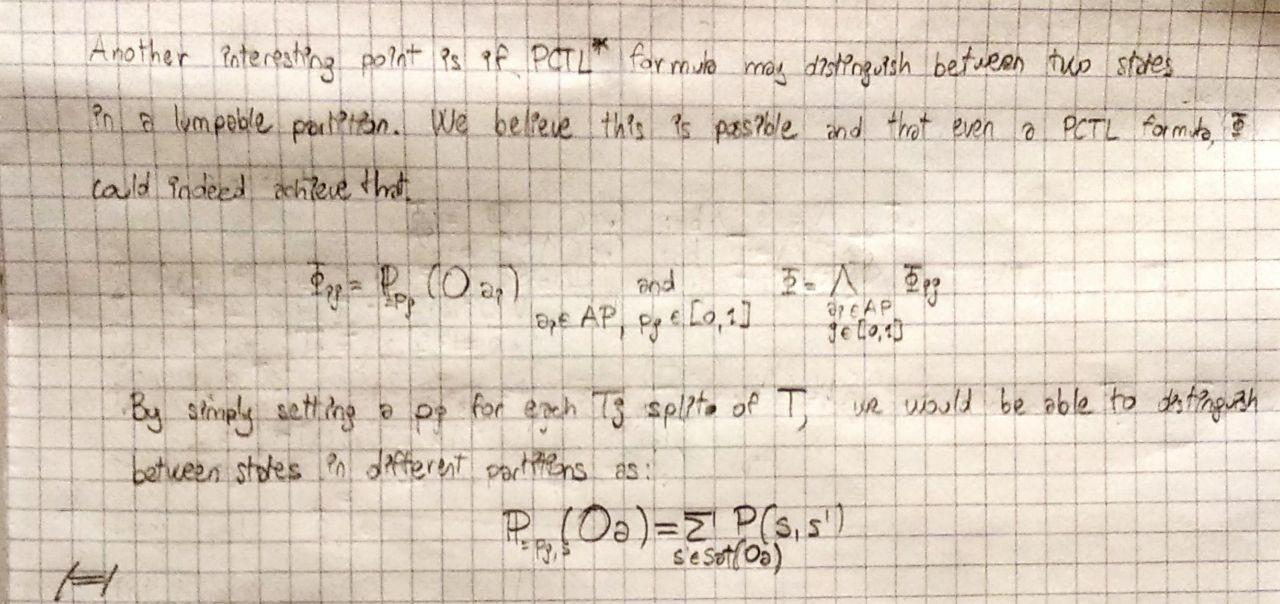 Another interesting point is if PCTL* formula may distinguish between two states
in a lumpable partition. We believe this is possible and that even a PCTL formula, Φ
could indeed achieve that.
Φpg = P=pg (O ap) ap ∈ AP, pg ∈ [0,1] and Φ = Λ ap ∈ AP g ∈ [0,1] Φpg
By simply setting a pg for each Tg split of T, we would be able to distinguish
between states in different partitions as:
P=pg,s (Oa) = Σ s'∈Sat(Oa) P(s,s')